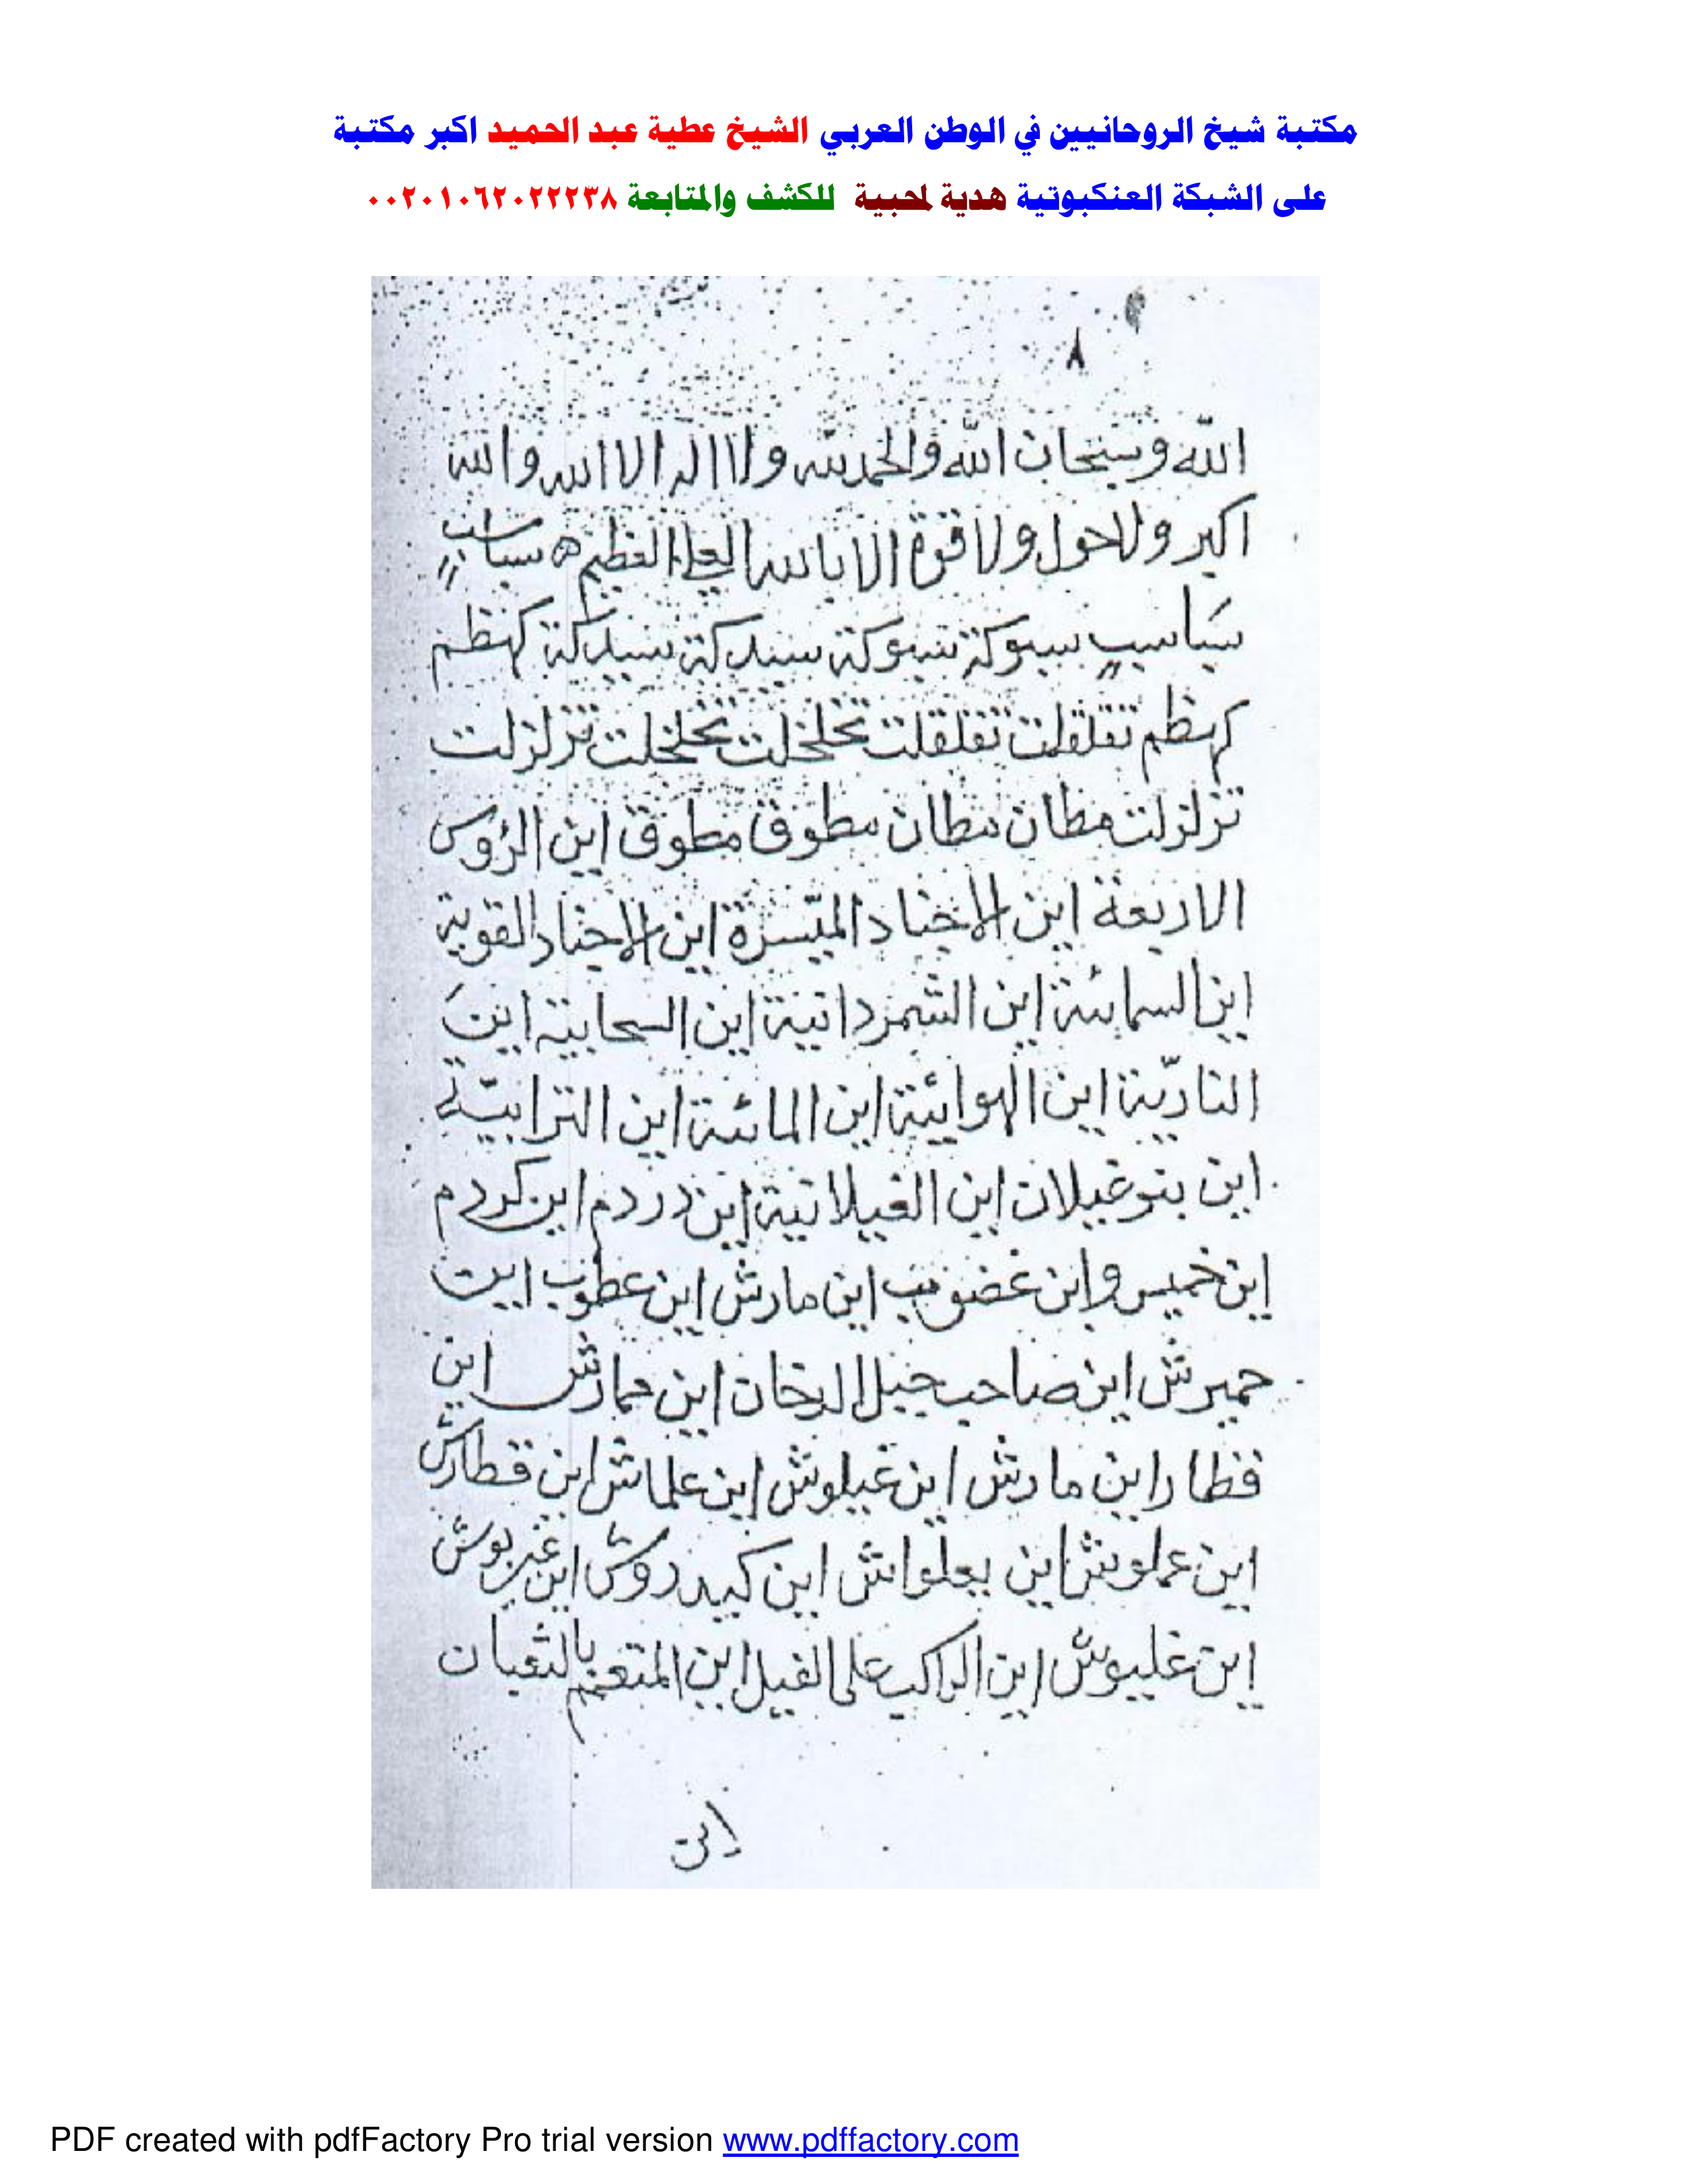 مكتبة شيخ الروحانيين في الوطن العربي الشيخ عطية عبد الحميد اكبر مكتبة
على الشبكة العنكبوتية هدية لمحبية للكشف والمتابعة ٠٠٢٠١٠٦٢٠٢٢٢٣٨
٨
الله وسبحان الله والحمد لله ولا اله الا الله والله
اكبر ولا حول ولا قوة الا بالله العلي العظيم ه سباسب
سياسيب سبوكة سبوكة سندكة سندكة كهظم
كهظم تقلقلت تقلقلت تخلخلت تخلخلت تزلزلت
تزلزلت مطان مطان مطوق مطوق اين الرؤس
الاربعة اين الاجناد الميسرة اين الاجناد القوية
اين السمائية اين الشمردانية اين السحابية اين
النارية اين الهوائية اين المائية اين الترابية
اين بنو غيلان اين الغيلانية اين دردم اين كردم
اين خميس واين غضوب اين مارش اين عطوب اين
حميرش اين صاحب جبل الدخان اين حمارش اين
قطار اين مارش اين غيلوش اين علماش اين قطارش
اين عملوش اين يعلواش اين كيدروش اين غربوش
اين غليوش اين الراكب على الفيل اين المتعمم بالثعبان
اين
PDF created with pdfFactory Pro trial version www.pdffactory.com